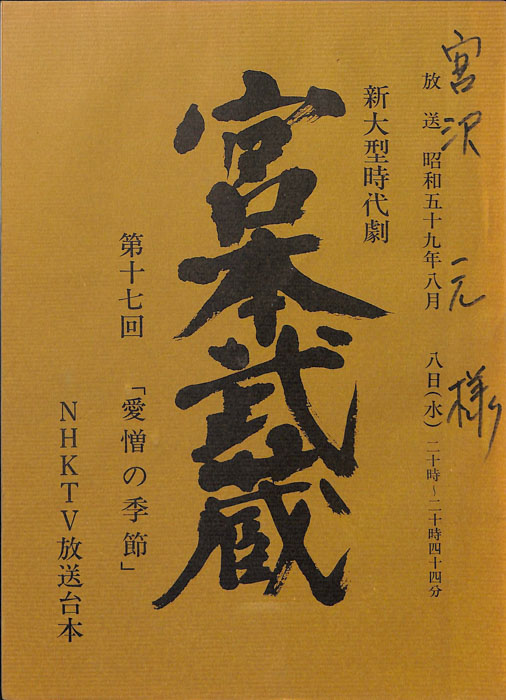 宮沢元様
放送 昭和五十九年八月 八日(水)二十時~二十時四十四分
新大型時代劇
宮本武蔵
第十七回 「愛憎の季節」
NHKTV放送台本